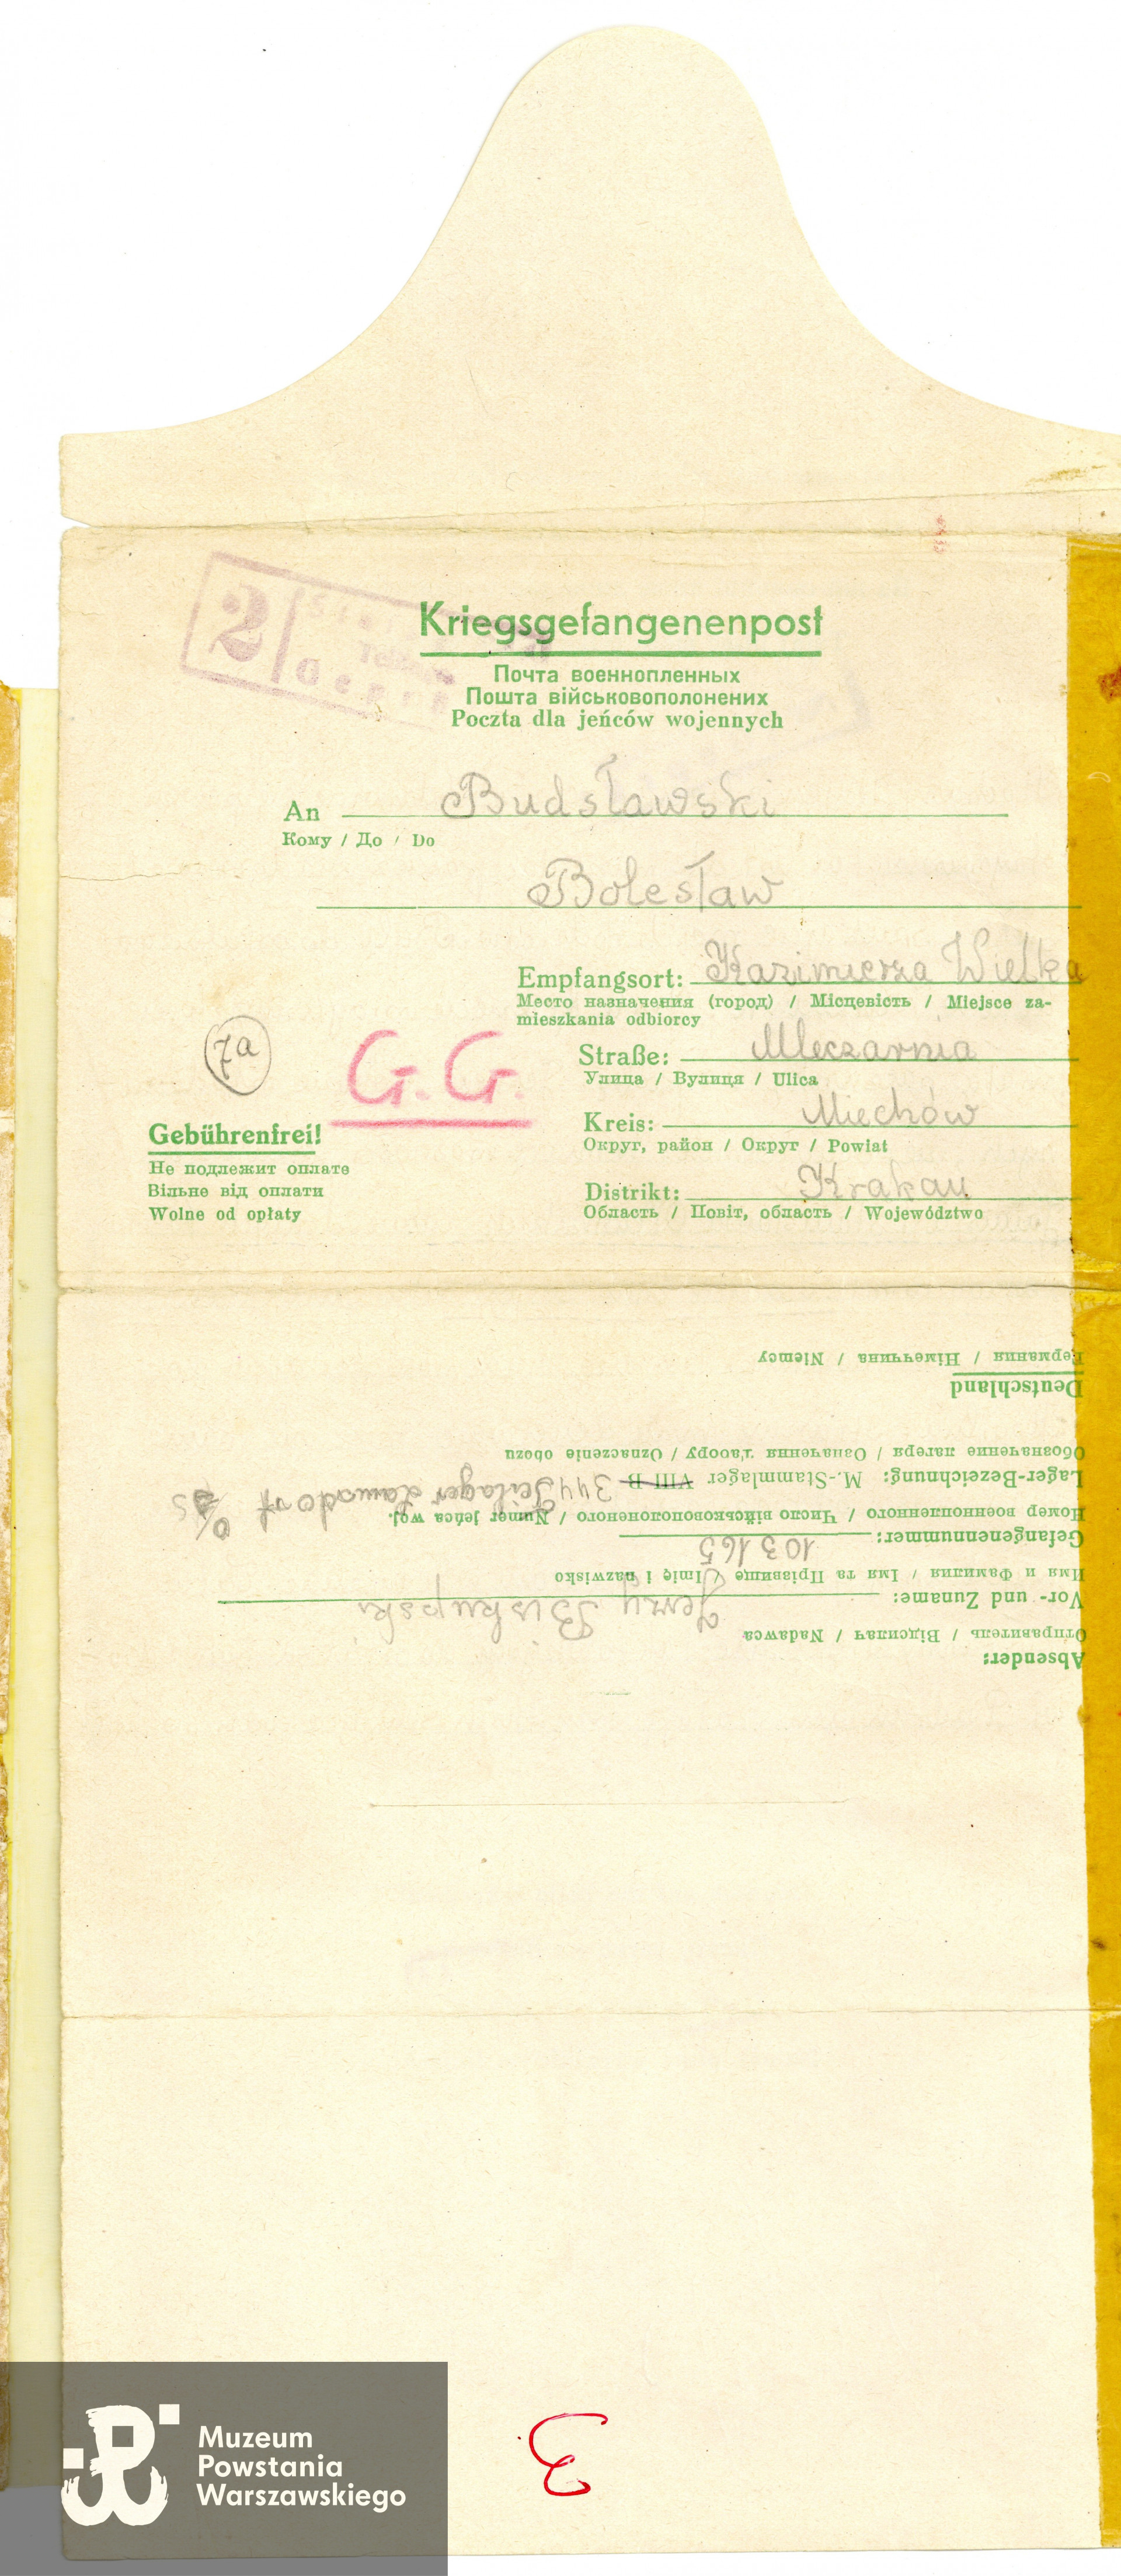 2
Geprüft
Kriegsgefangenenpost
Почта военнопленных
Пошта військовополонених
Poczta dla jeńców wojennych
An Budsławski
Кому / До / Do
Bolesław
Empfangsort: Kazimierza Wielka
Место назначения (город) / Місцевість / Miejsce za-
mieszkania odbiorcy
7a
G.G.
Straße: Mleczarnia
Улица / Вулиця / Ulica
Kreis: Miechów
Округ, район / Округ / Powiat
Gebührenfrei!
Не подлежит оплате
Вільне від оплати
Wolne od opłaty
Distrikt: Krakau
Область / Повіт, область / Województwo
Absender:
Отправитель / Відсилач / Nadawca
Vor- und Zuname: Jerzy Biskupski
Имя и Фамилия / Імя та Прізвище / Imię i nazwisko
Gefangenennummer: 103165
Номер военнопленного / Число військовополоненого / Numer jeńca woj.
Lager-Bezeichnung: M.-Stammlager VIII B 344 Teilager Lamsdorf
Обозначение лагеря / Означення табору / Oznaczenie obozu
Deutschland
Германия / Німеччина / Niemcy
3
Muzeum
Powstania
Warszawskiego